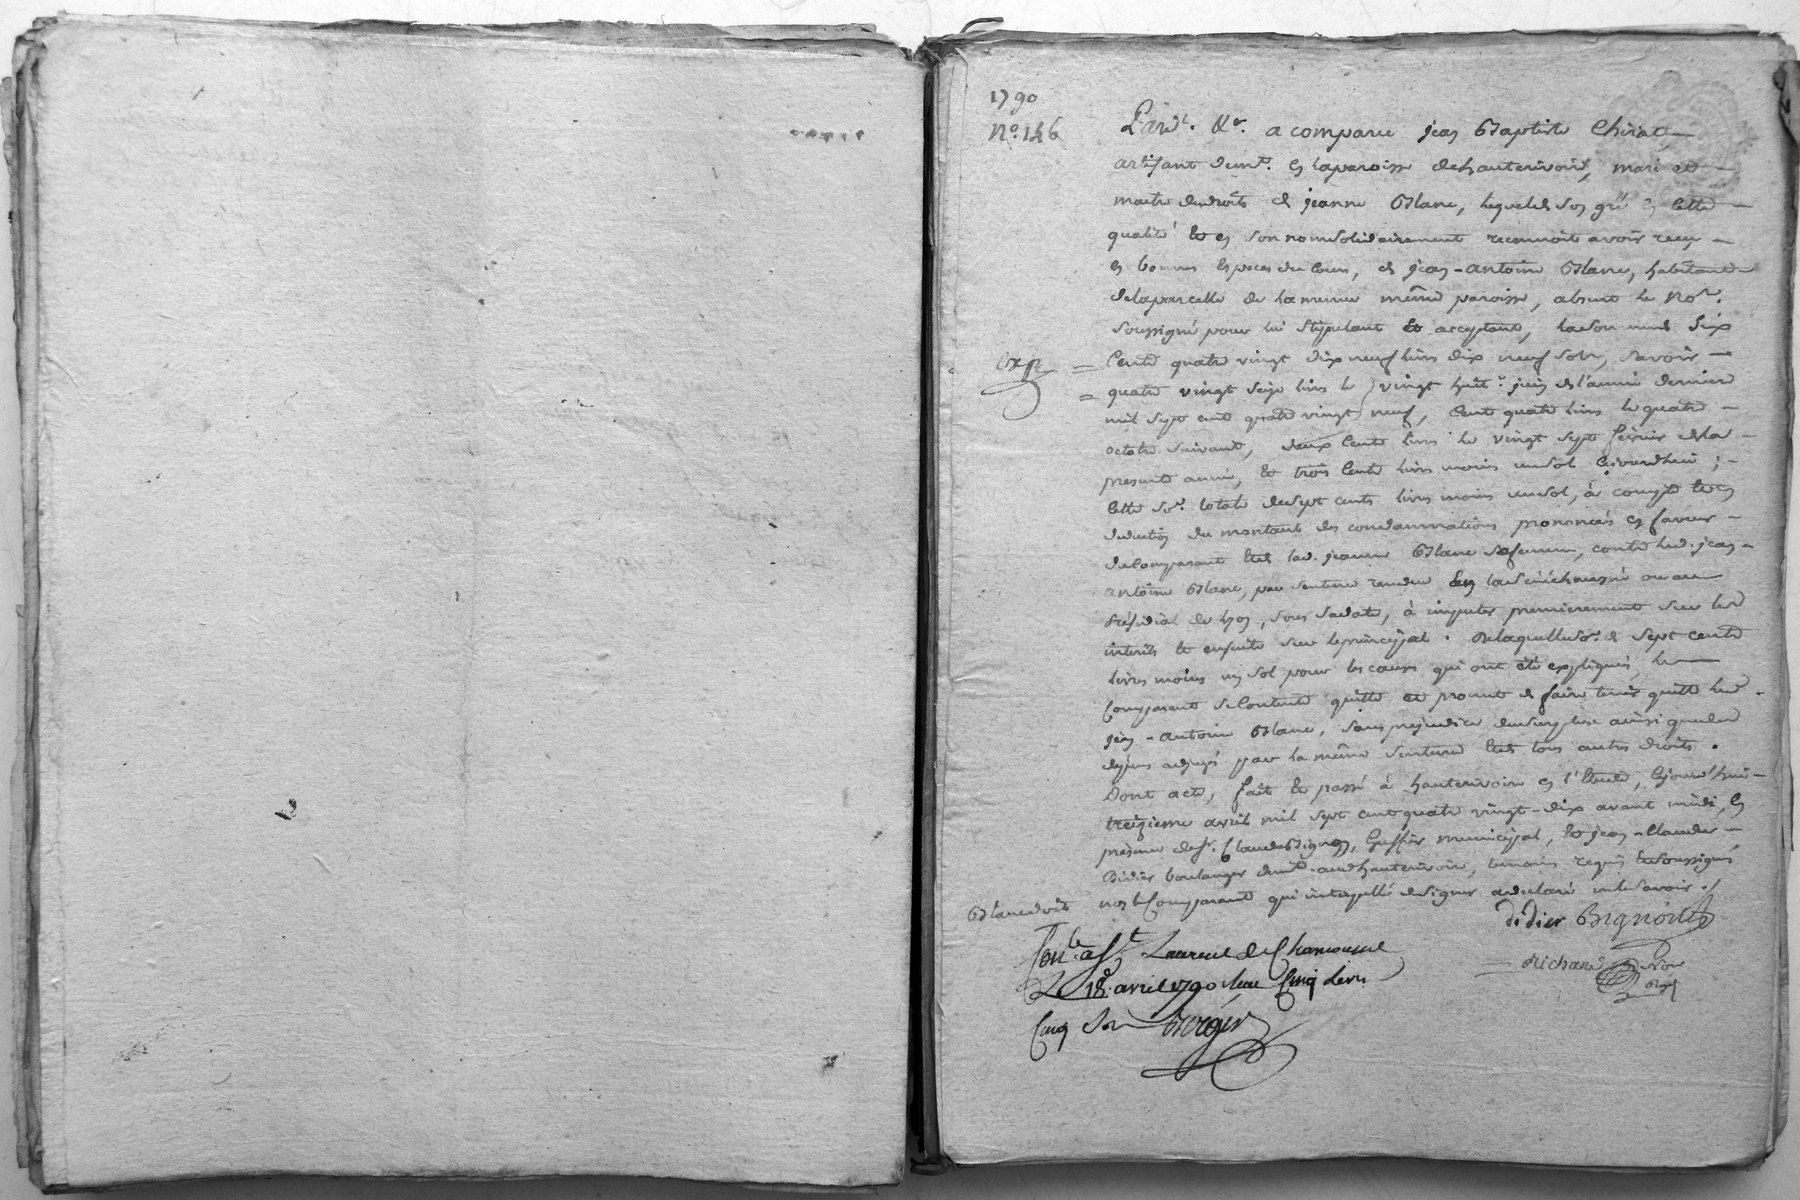 1790
N.º 146
Pard.t &c. a comparu jean Baptiste Chirat
artisant dem.t en la paroisse de hauterivoire, mari et
maitre des droits de jeanne Blanc, lequel de son gré en cette
qualité et en son nom solidairement reconnoit avoir reçu
en bonnes especes du cours, de jean-antoine Blanc, habitant
de la parcelle de la même paroisse, absent le No.re
soussigné pour lui stipulant et acceptant, la somme de six
Exp.
cents quatre vingt dix neuf livres dix neuf sols, savoir
quatre vingt seize livres le vingt huit juin de l'année derniere
mil sept cent quatre vingt neuf, cent quatre livres le quatre
octobre suivant, deux cents livres le vingt sept fevrier de la
presente année, et trois cents livres moins un sol cejourdhui ;
cette so.e totale de sept cents livres moins un sol, à compte et en
deduction du montant des condamnations prononcées en faveur
du comparant et de lad. jeanne Blanc sa femme, contre led. jean
antoine Blanc, par sentence rendue en la sénéchaussée ou au
présidial de lyon, sous sa date, à imputer premierement sur les
interets et ensuite sur le principal. De laquelle so.e de sept cents
livres moins un sol pour les causes qui ont été expliquées, le
comparant se contente quitte et promet de faire tenir quitte led.
jean-antoine Blanc, sans prejudice du surplus ainsi que des
depens adjugés par la même sentence et de tous autres droits.
Dont acte, fait et passé à hauterivoire en l'étude, cejourd'hui
treizieme avril mil sept cent quatre vingt-dix avant midi, en
presence de s.r Claude Bignon, greffier municipal, et jean-claude
Didier boulanger dem.t aud. hauterivoire, temoins requis et soussignés
non le comparant qui interpellé de signer a declaré ne le savoir ./
didier Bignon
Richard No.re
Con.lé a S.t Laurent de Chamousset
Le 18 avril 1790 reçu Cinq livres
Cinq sols Berger